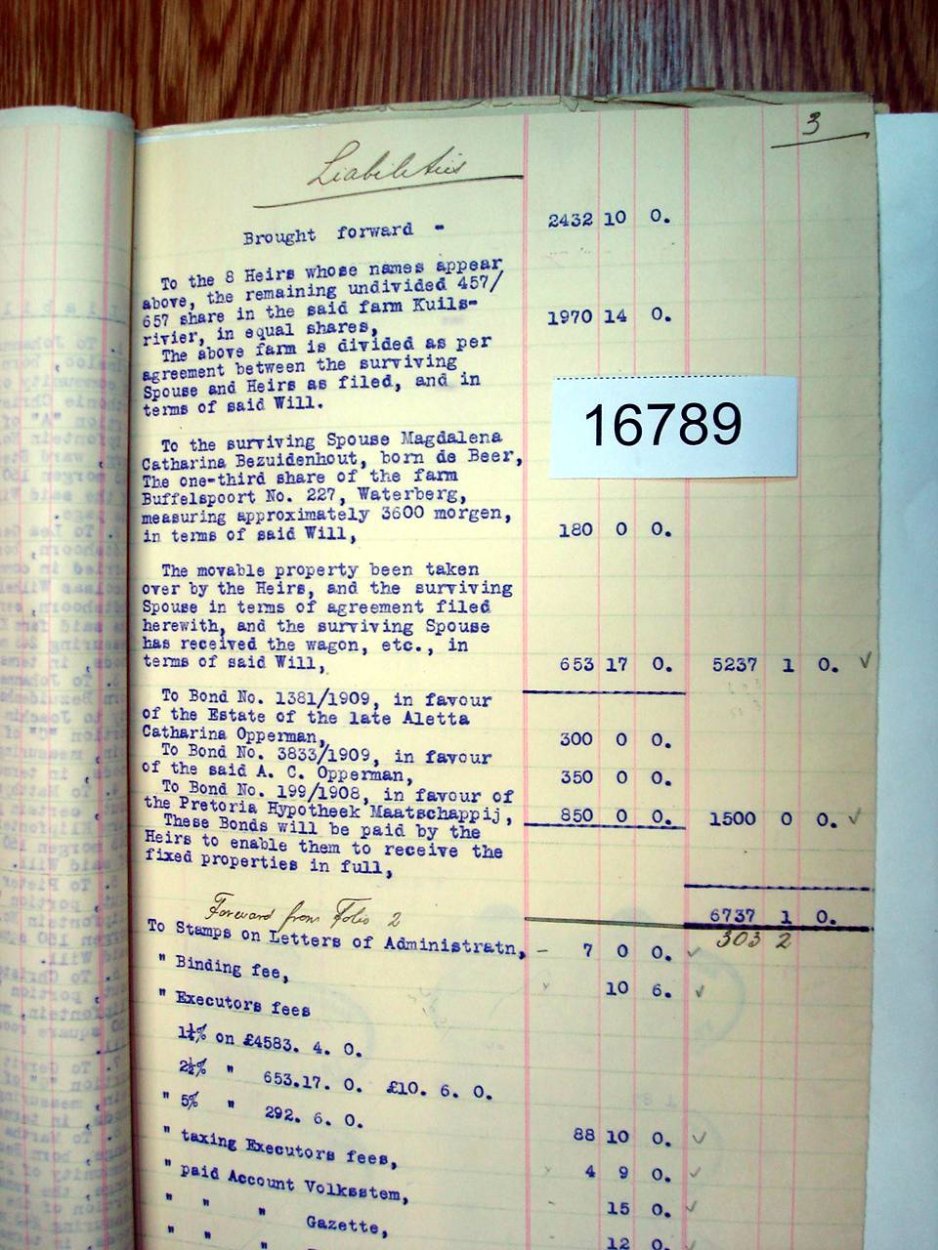 3
Liabilities
Brought forward - 2432 10 0.
To the 8 Heirs whose names appear
above, the remaining undivided 457/
657 share in the said farm Kuils-
rivier, in equal shares, 1970 14 0.
The above farm is divided as per
agreement between the surviving
Spouse and Heirs as filed, and in
terms of said Will.
16789
To the surviving Spouse Magdalena
Catharina Bezuidenhout, born de Beer,
The one-third share of the farm
Buffelspoort No. 227, Waterberg,
measuring approximately 3600 morgen,
in terms of said Will, 180 0 0.
The movable property been taken
over by the Heirs, and the surviving
Spouse in terms of agreement filed
herewith, and the surviving Spouse
has received the wagon, etc., in
terms of said Will, 653 17 0. 5237 1 0. ✓
To Bond No. 1381/1909, in favour
of the Estate of the late Aletta
Catharina Opperman, 300 0 0.
To Bond No. 3833/1909, in favour
of the said A. C. Opperman, 350 0 0.
To Bond No. 199/1908, in favour of
the Pretoria Hypotheek Maatschappij, 850 0 0. 1500 0 0. ✓
These Bonds will be paid by the
Heirs to enable them to receive the
fixed properties in full,
6737 1 0.
Forward from Folio 2 303 2
To Stamps on Letters of Administratn, - 7 0 0. ✓
" Binding fee, 10 6. ✓
" Executors fees
1¼% on £4583. 4. 0.
2½% " 653.17. 0. £10. 6. 0.
" 5% " 292. 6. 0. 88 10 0. ✓
" taxing Executors fees, 4 9 0. ✓
" paid Account Volksstem, 15 0. ✓
" " " Gazette, 12 0.
" " "